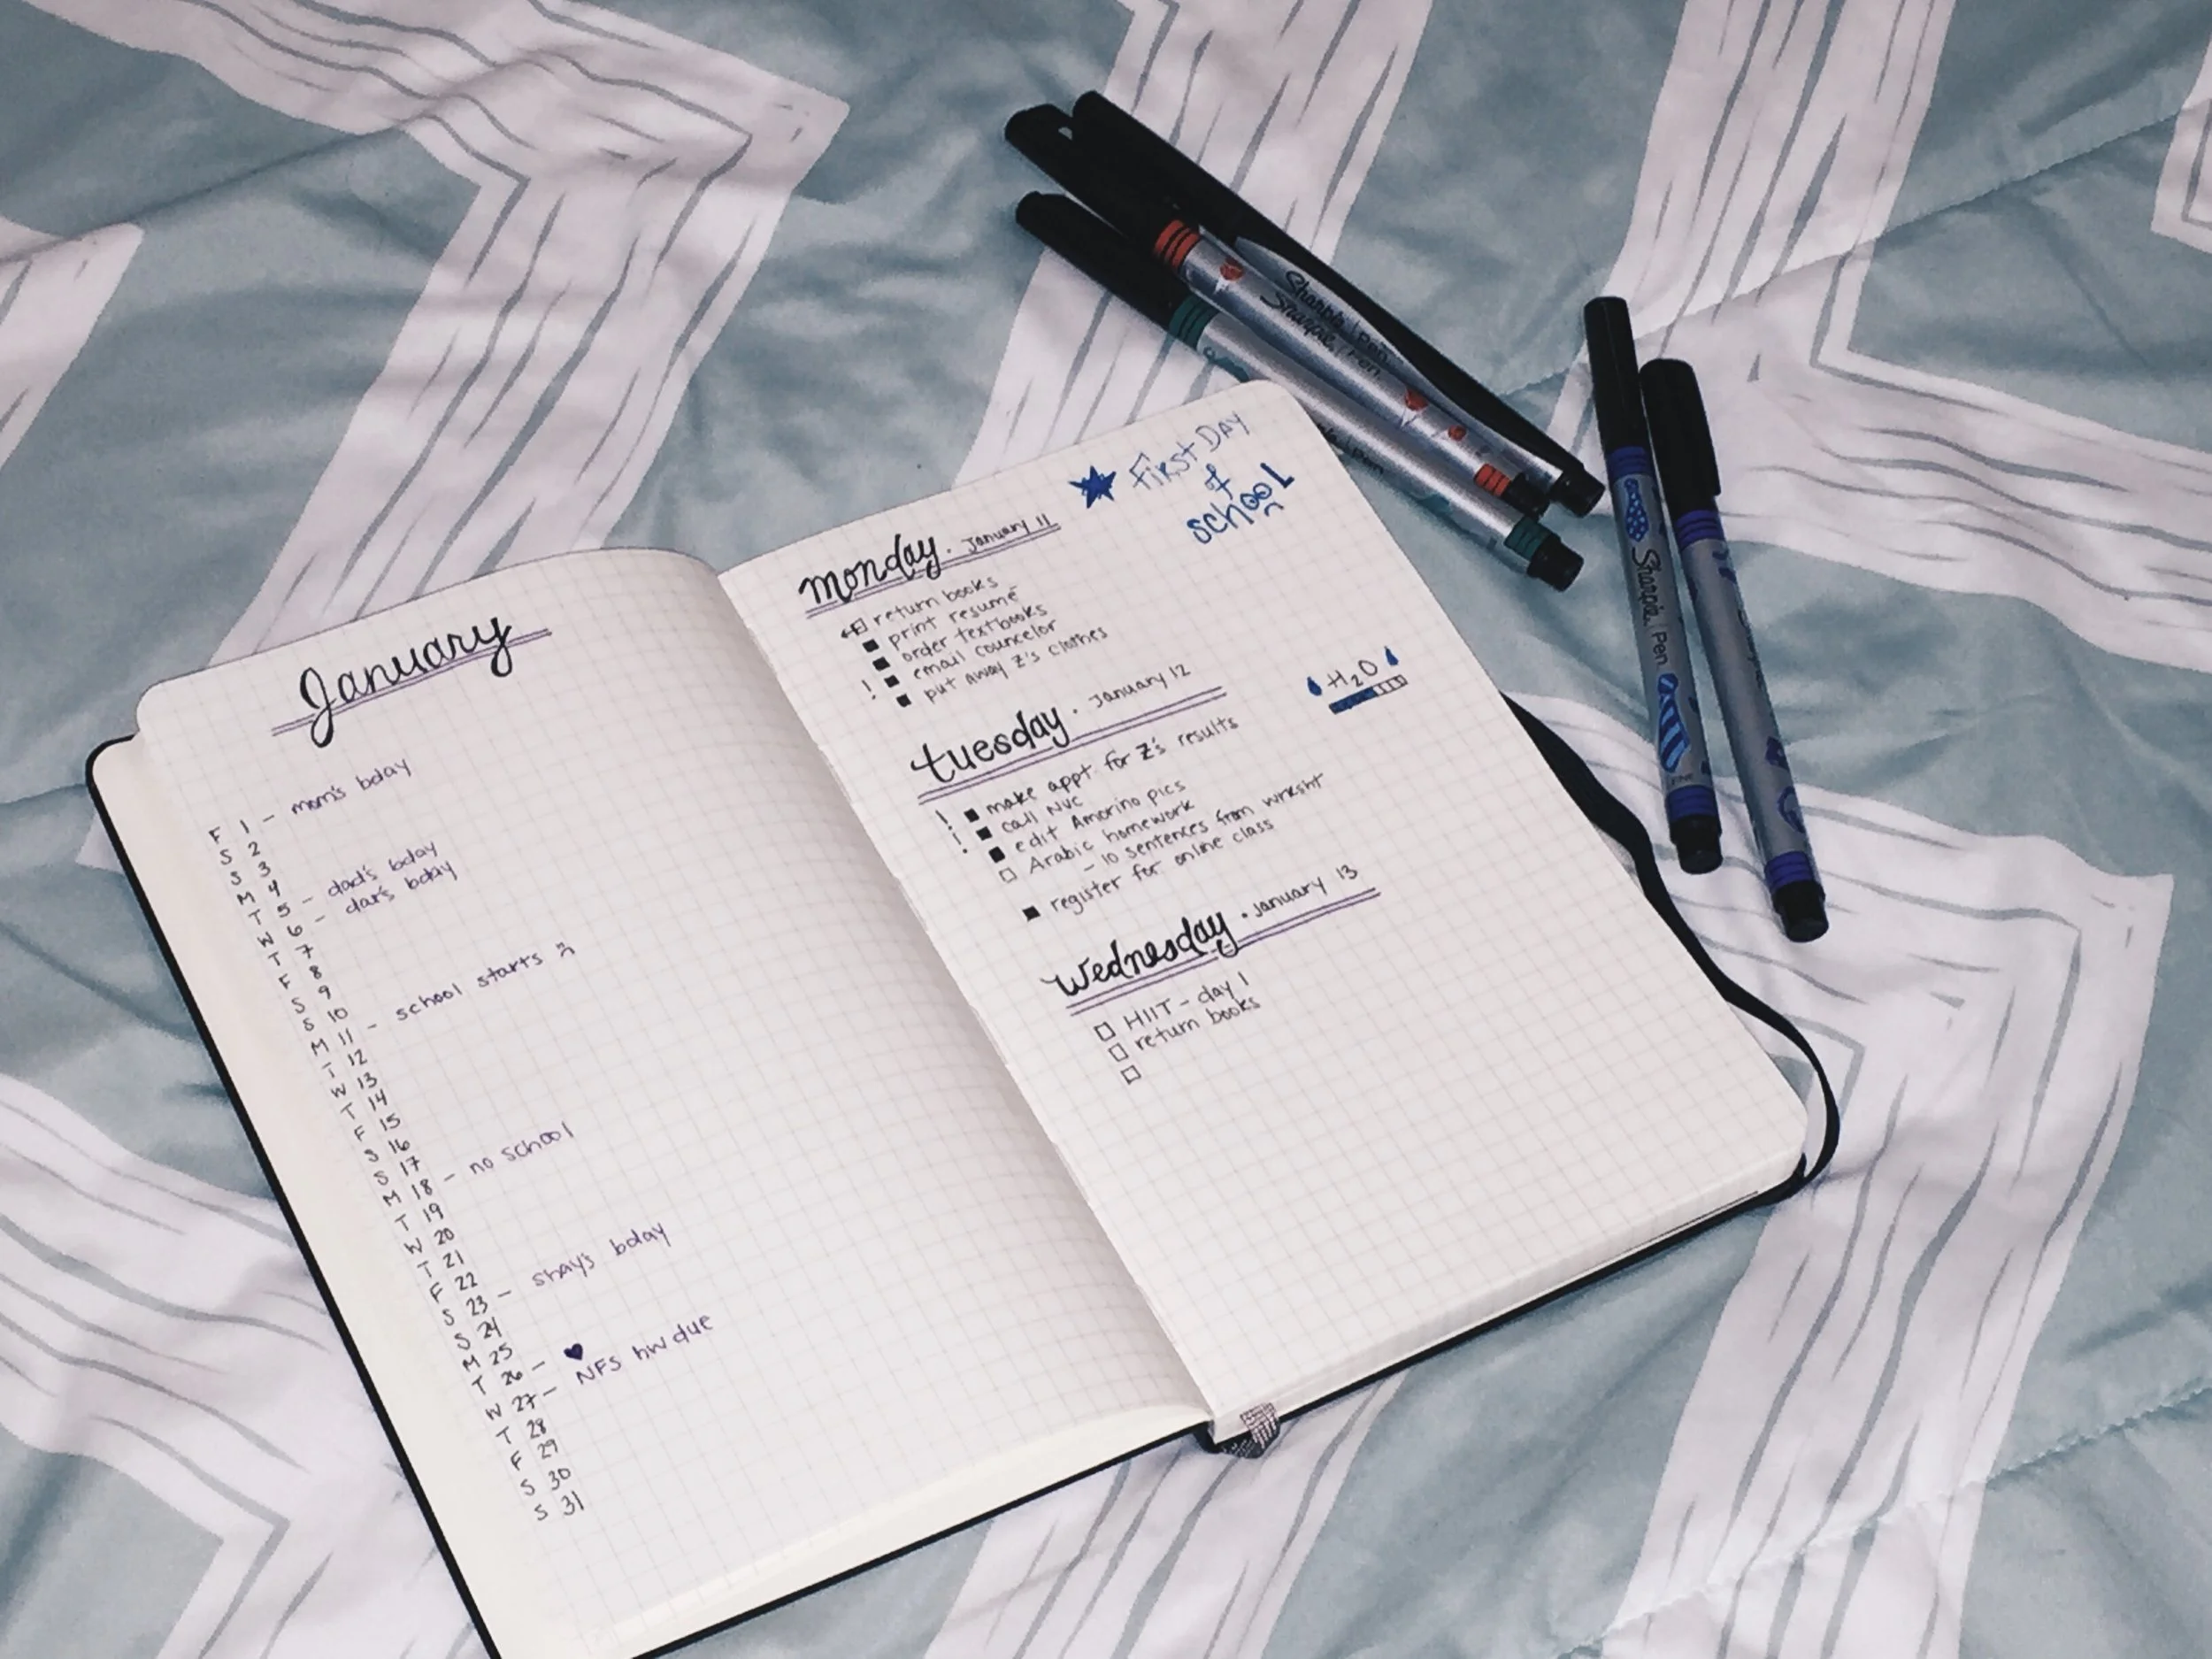 January
F 1 - mom's bday
S 2
S 3
M 4
T 5 - dad's bday
W 6 - dar's bday
T 7
F 8
S 9
S 10
M 11 - school starts :(
T 12
W 13
T 14
F 15
S 16
S 17
M 18 - no school
T 19
W 20
T 21
F 22
S 23 - shay's bday
S 24
M 25
T 26 - ♥
W 27 - NFS hw due
T 28
F 29
S 30
S 31
monday · January 11
return books
print resumé
order textbooks
email councelor
! put away Z's clothes
★ FirST DAY
of
school
tuesday · January 12
! make appt. for Z's results
! call NVC
edit Amorino pics
Arabic homework
- 10 sentences from wrksht
register for online class
H2O
wednesday · January 13
HIIT - day 1
return books
Sharpie Pen
Sharpie Pen
Pen
Sharpie Pen